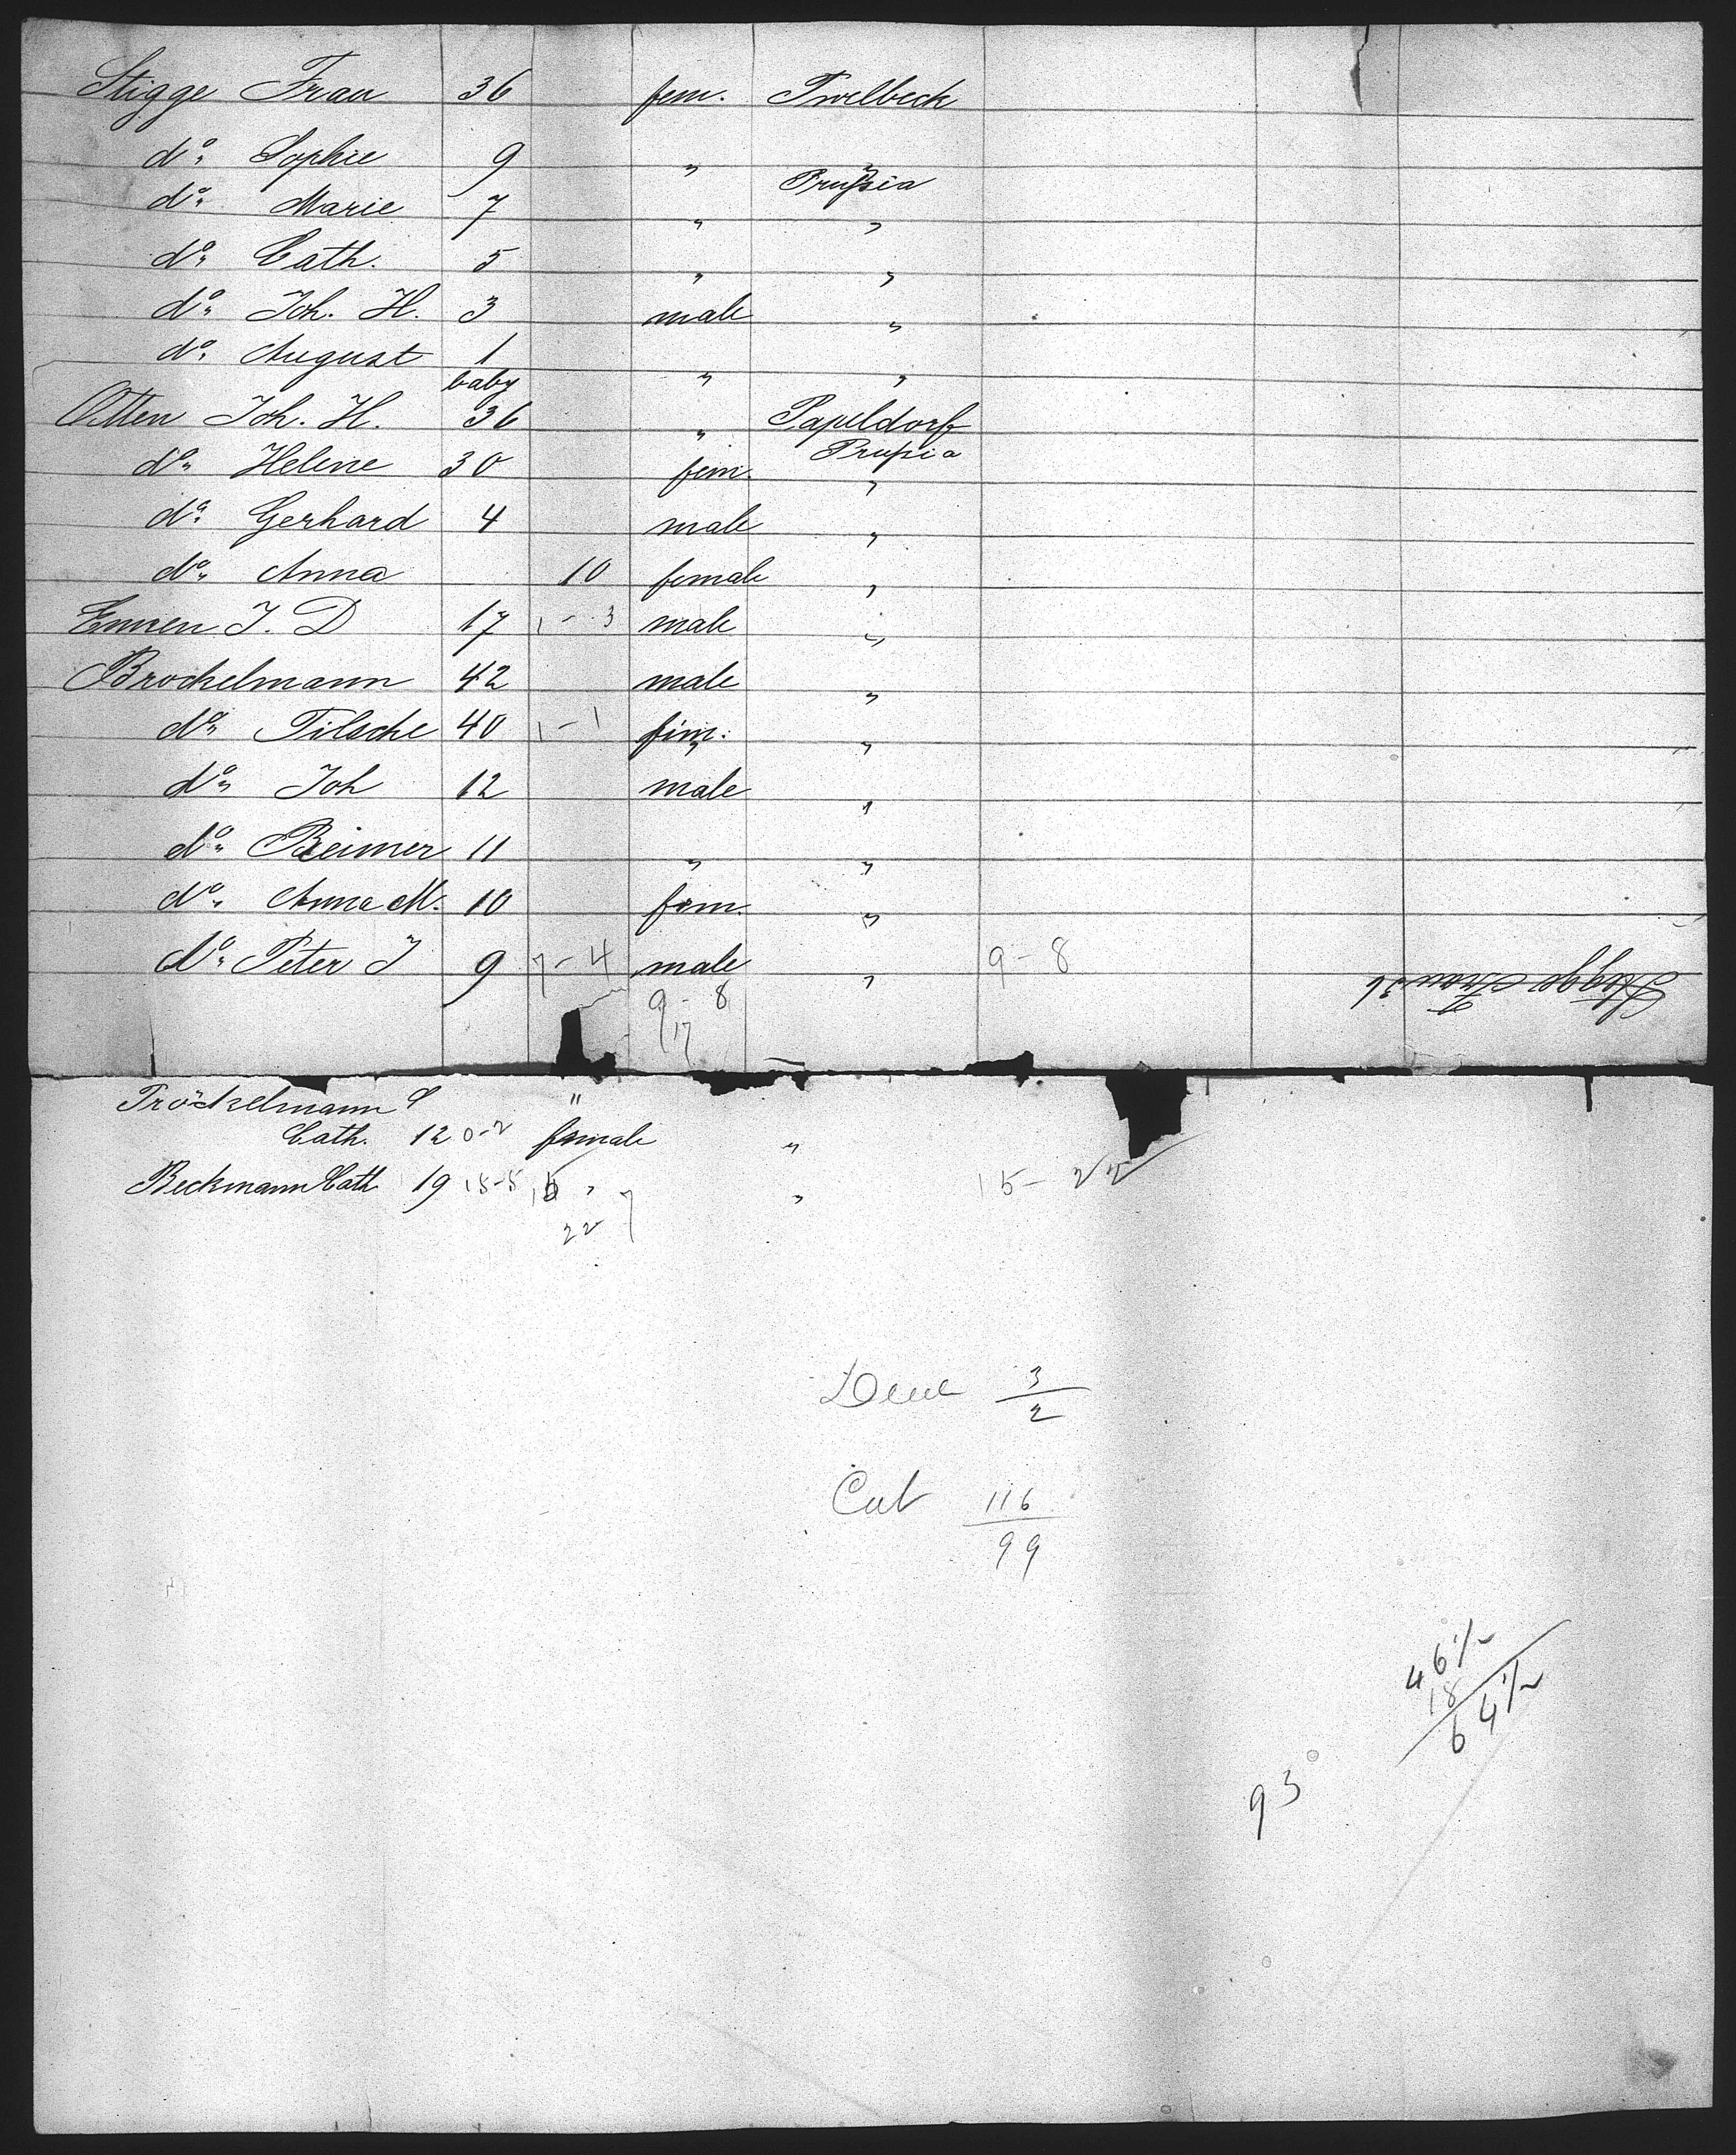 Stigge Frau 36 fem. Twelbeck
do. Sophie 9 " "
Prussia
do. Marie 7 " "
do. Cath. 5 " "
do. Joh. H. 3 male "
do. August 1 " "
baby
Otten Joh. H. 36 " Papeldorf
Prussia
do. Helene 30 fem. "
do. Gerhard 4 male "
do. Anna 10 female "
Ennen J. D 17 1-3 male "
Brockelmann 42 male "
do. Tilsche 40 1-1 fem. "
do. Joh 12 male "
do. Reimer 11 " "
do. Anna M. 10 fem. "
do. Peter J 9 7-4 male " 9-8
9-8
17
Stigge Frau 36
Tröckelmann "
Cath. 12 0-2 female "
Beckmann Cath 19 15-5 " " 15-22
22 7
3
2
Cab 116
99
46 1/2
18
64 1/2
93